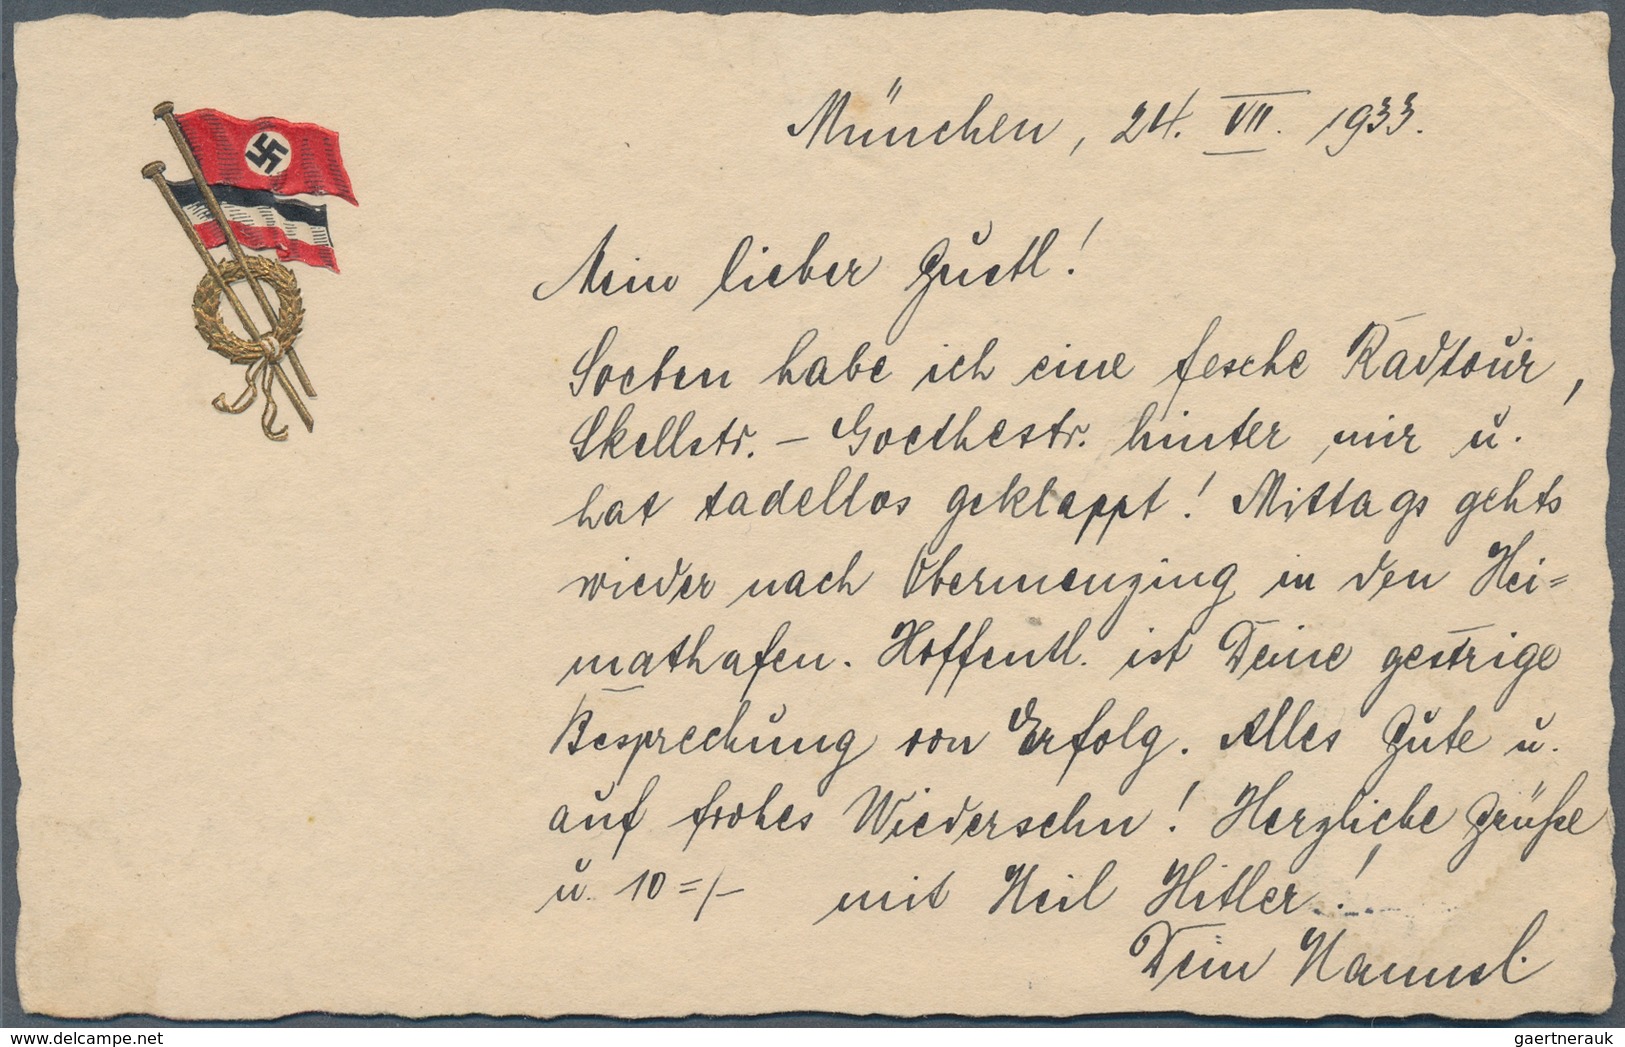 München, 24. VII. 1933.
Mein lieber Gustl!
Soeben habe ich eine fesche Radtour,
Skellstr. – Goethestr. hinter mir u.
hat tadellos geklappt! Mittags gehts
wieder nach Obermenzing in den Hei=
mathafen. Hoffentl. ist Deine gestrige
Besprechung von Erfolg. Alles Gute u.
auf frohes Wiedersehn! Herzliche Grüße
u. 10=/– mit Heil Hitler!
Dein Hannsl.
www.delcampe.net
gaertnerauk